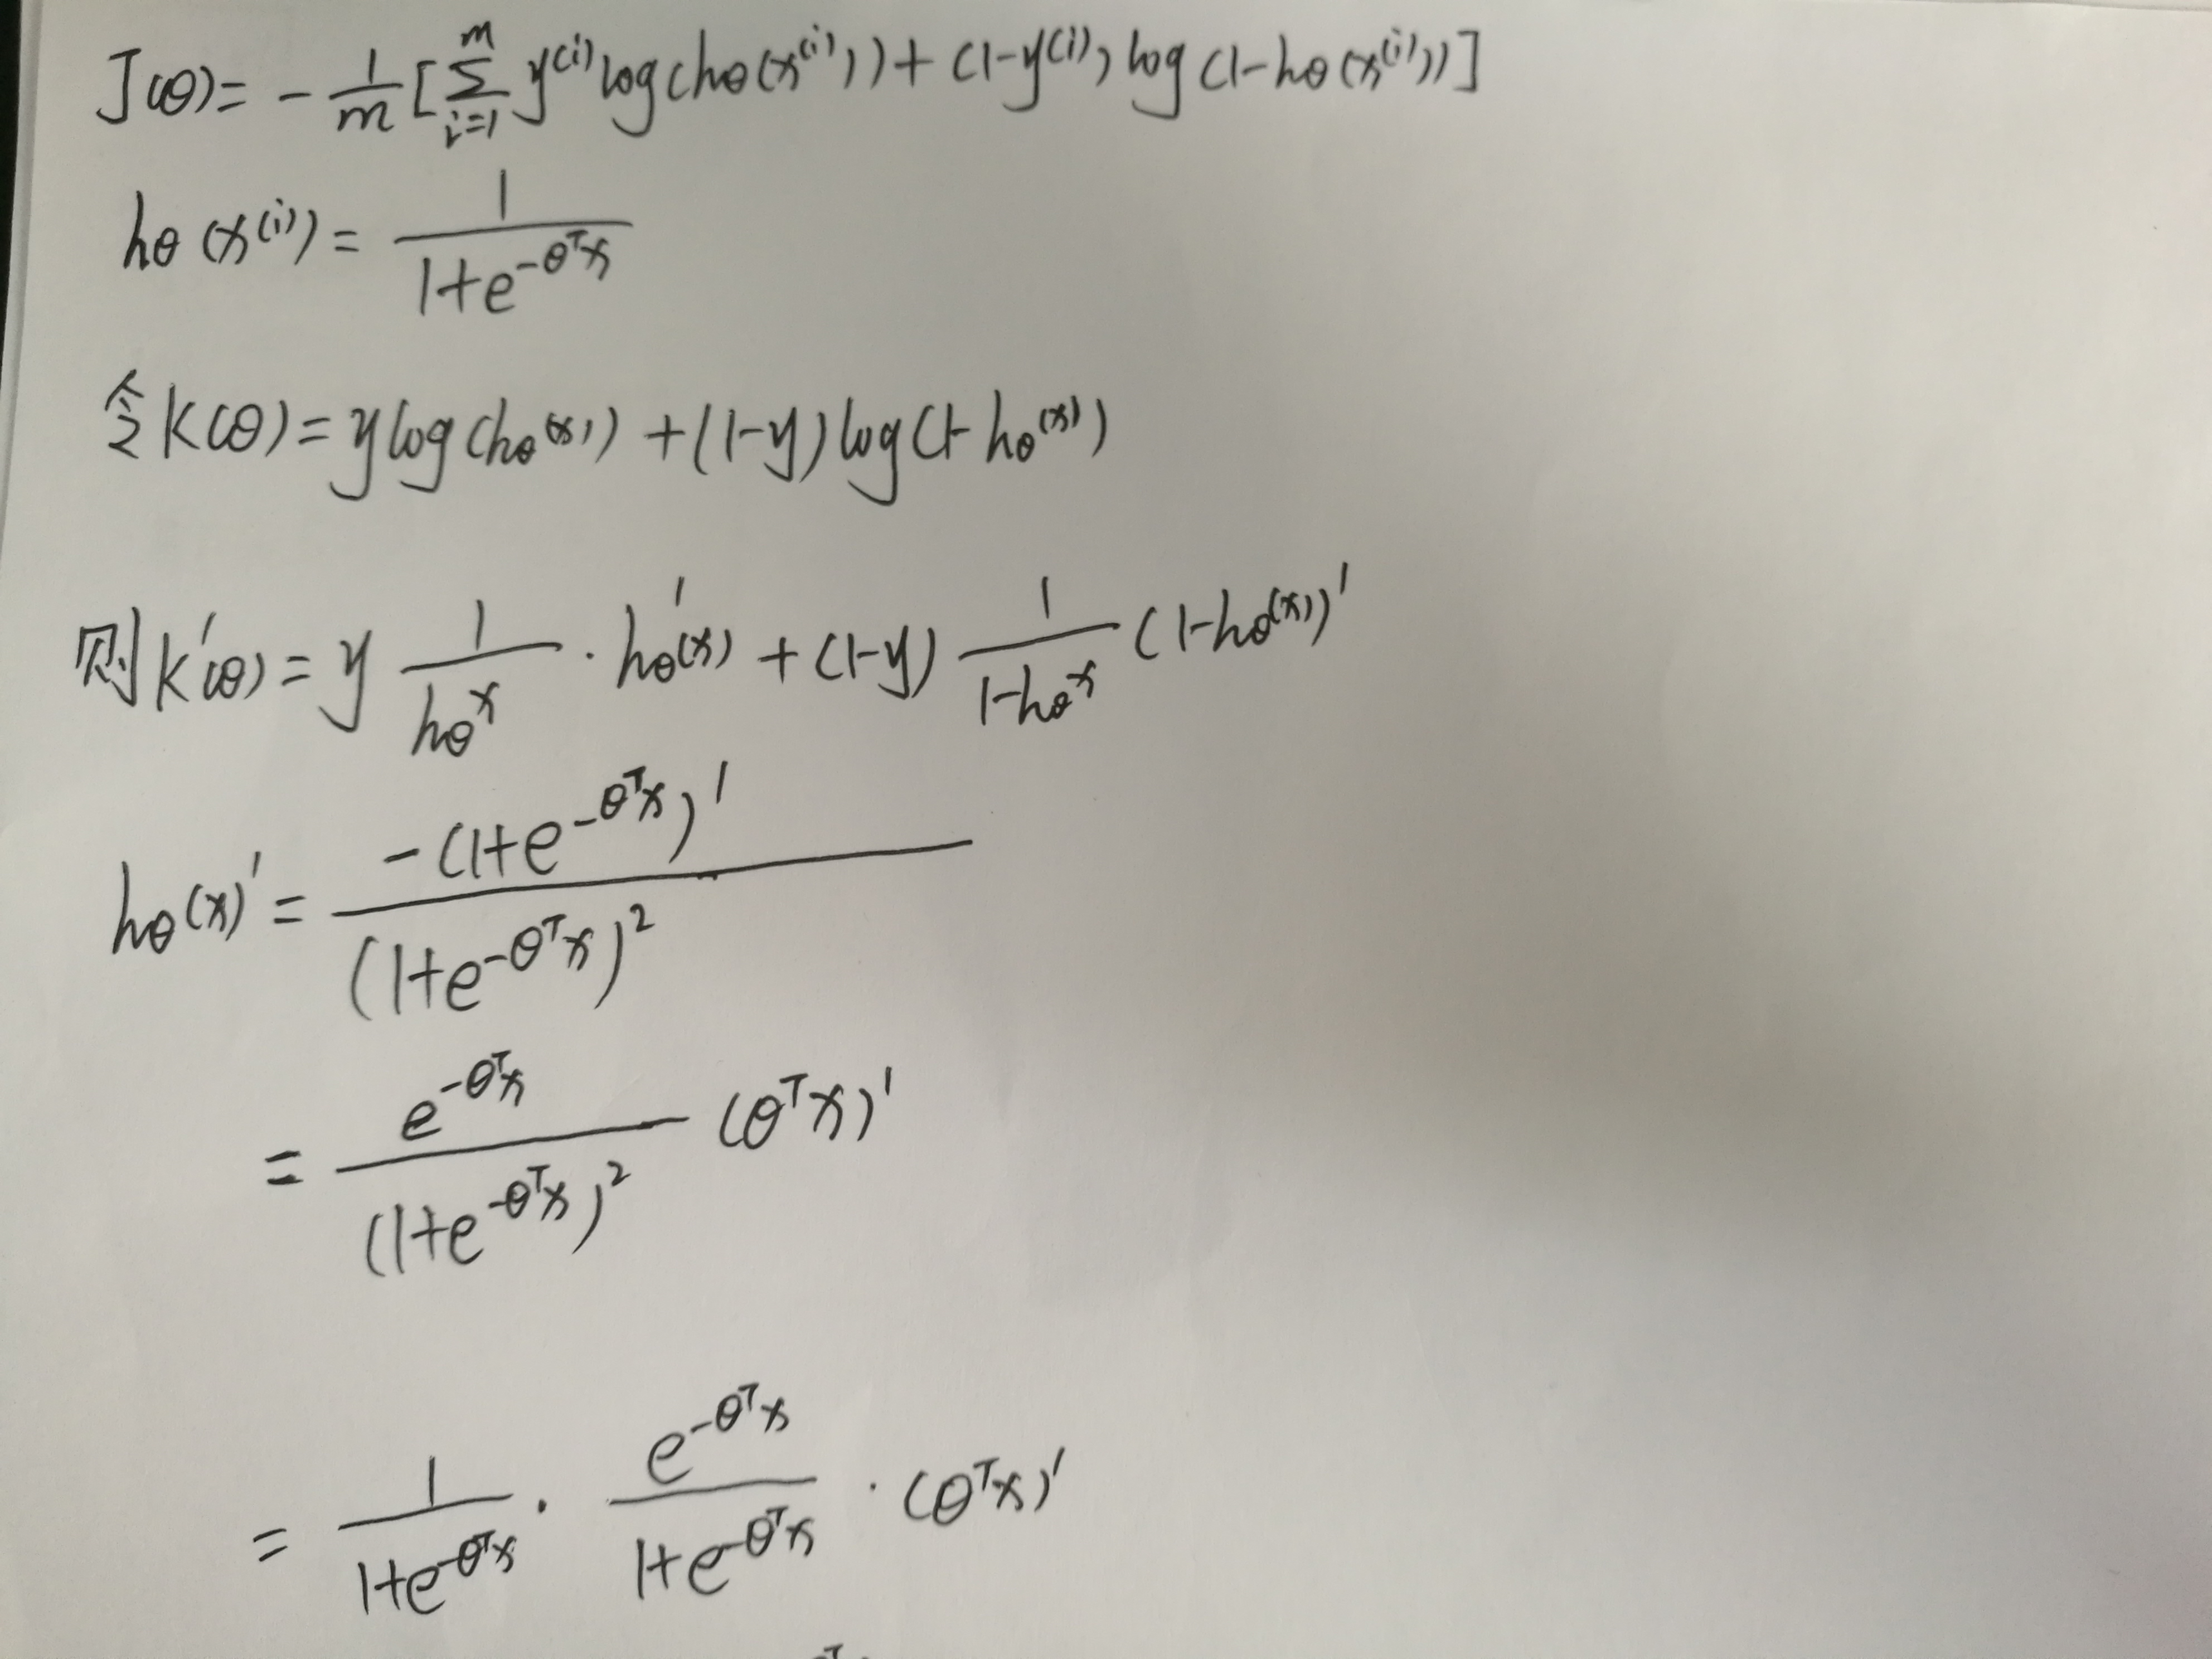 J(θ) = - 1/m [ Σ_{i=1}^{m} y^{(i)} log(hθ(x^{(i)})) + (1-y^{(i)}) log(1-hθ(x^{(i)})) ]
hθ(x^{(i)}) = 1/(1+e^{-θ^T x})
令 K(θ) = y log(hθ(x)) + (1-y) log(1-hθ(x))
则 K'(θ) = y 1/(hθ^x) · hθ'(x) + (1-y) 1/(1-hθ^x) (1-hθ(x))'
hθ(x)' = -(1+e^{-θ^T x})' / (1+e^{-θ^T x})^2
= e^{-θ^T x} / (1+e^{-θ^T x})^2 (θ^T x)'
= 1/(1+e^{-θ^T x}) · e^{-θ^T x}/(1+e^{-θ^T x}) · (θ^T x)'